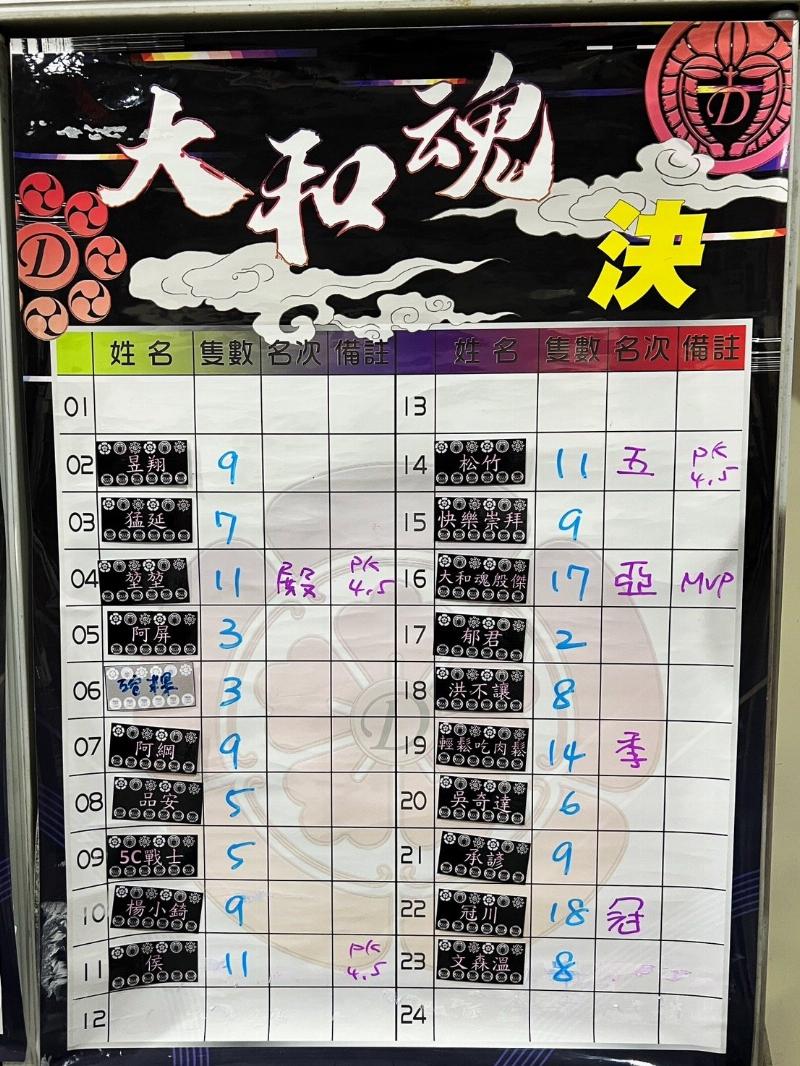 大和魂
D
D
決
姓名 隻數 名次 備註 姓名 隻數 名次 備註
01 13
02 昱翔 9 14 松竹 11 五 PK 4.5
03 猛延 7 15 快樂崇拜 9
04 堃堃 11 殿 PK 4.5 16 大和魂殷傑 17 亞 MVP
05 阿屏 3 17 郁君 2
06 3 18 洪不讓 8
07 阿綱 9 19 輕鬆吃肉鬆 14 季
08 品安 5 20 吳奇達 6
09 5C戰士 5 21 承諺 9
10 楊小錡 9 22 冠川 18 冠
11 侯 11 PK 4.5 23 文森溫 8
12 24
D